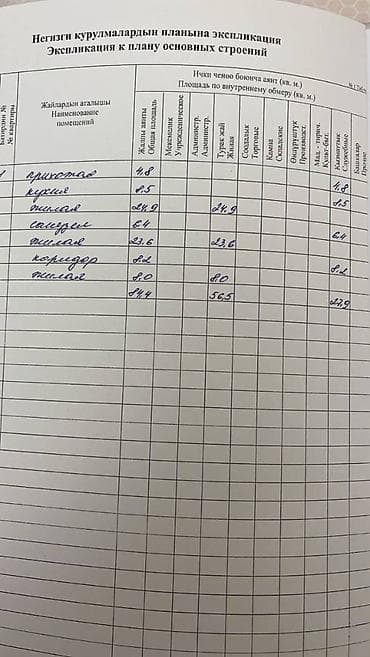 Негизги курулмалардын планына экспликация
Экспликация к плану основных строений
Жайлардын аталышы
Наименование
помещений
Ички ченөө боюнча аянт (кв. м.)
Площадь по внутреннему обмеру (кв. м.)
№ квартиры
Жалпы аянты
Общая площадь
Мекемелик
Учрежденческое
Администр.
Администр.
Турак жай
Жилая
Соодалык
Торговые
Кампа
Складские
Өндүрүштүк
Производст.
Мад. - тирич.
Культ-быт.
Кызматтык
Служебные
Башкалар
Прочие
1 прихожая 4,8 4,8
кухня 8,5 8,5
жилая 24,9 24,9
санузел 6,4 6,4
жилая 23,6 23,6
коридор 8,2 8,2
жилая 8,0 8,0
84,4 56,5 27,9